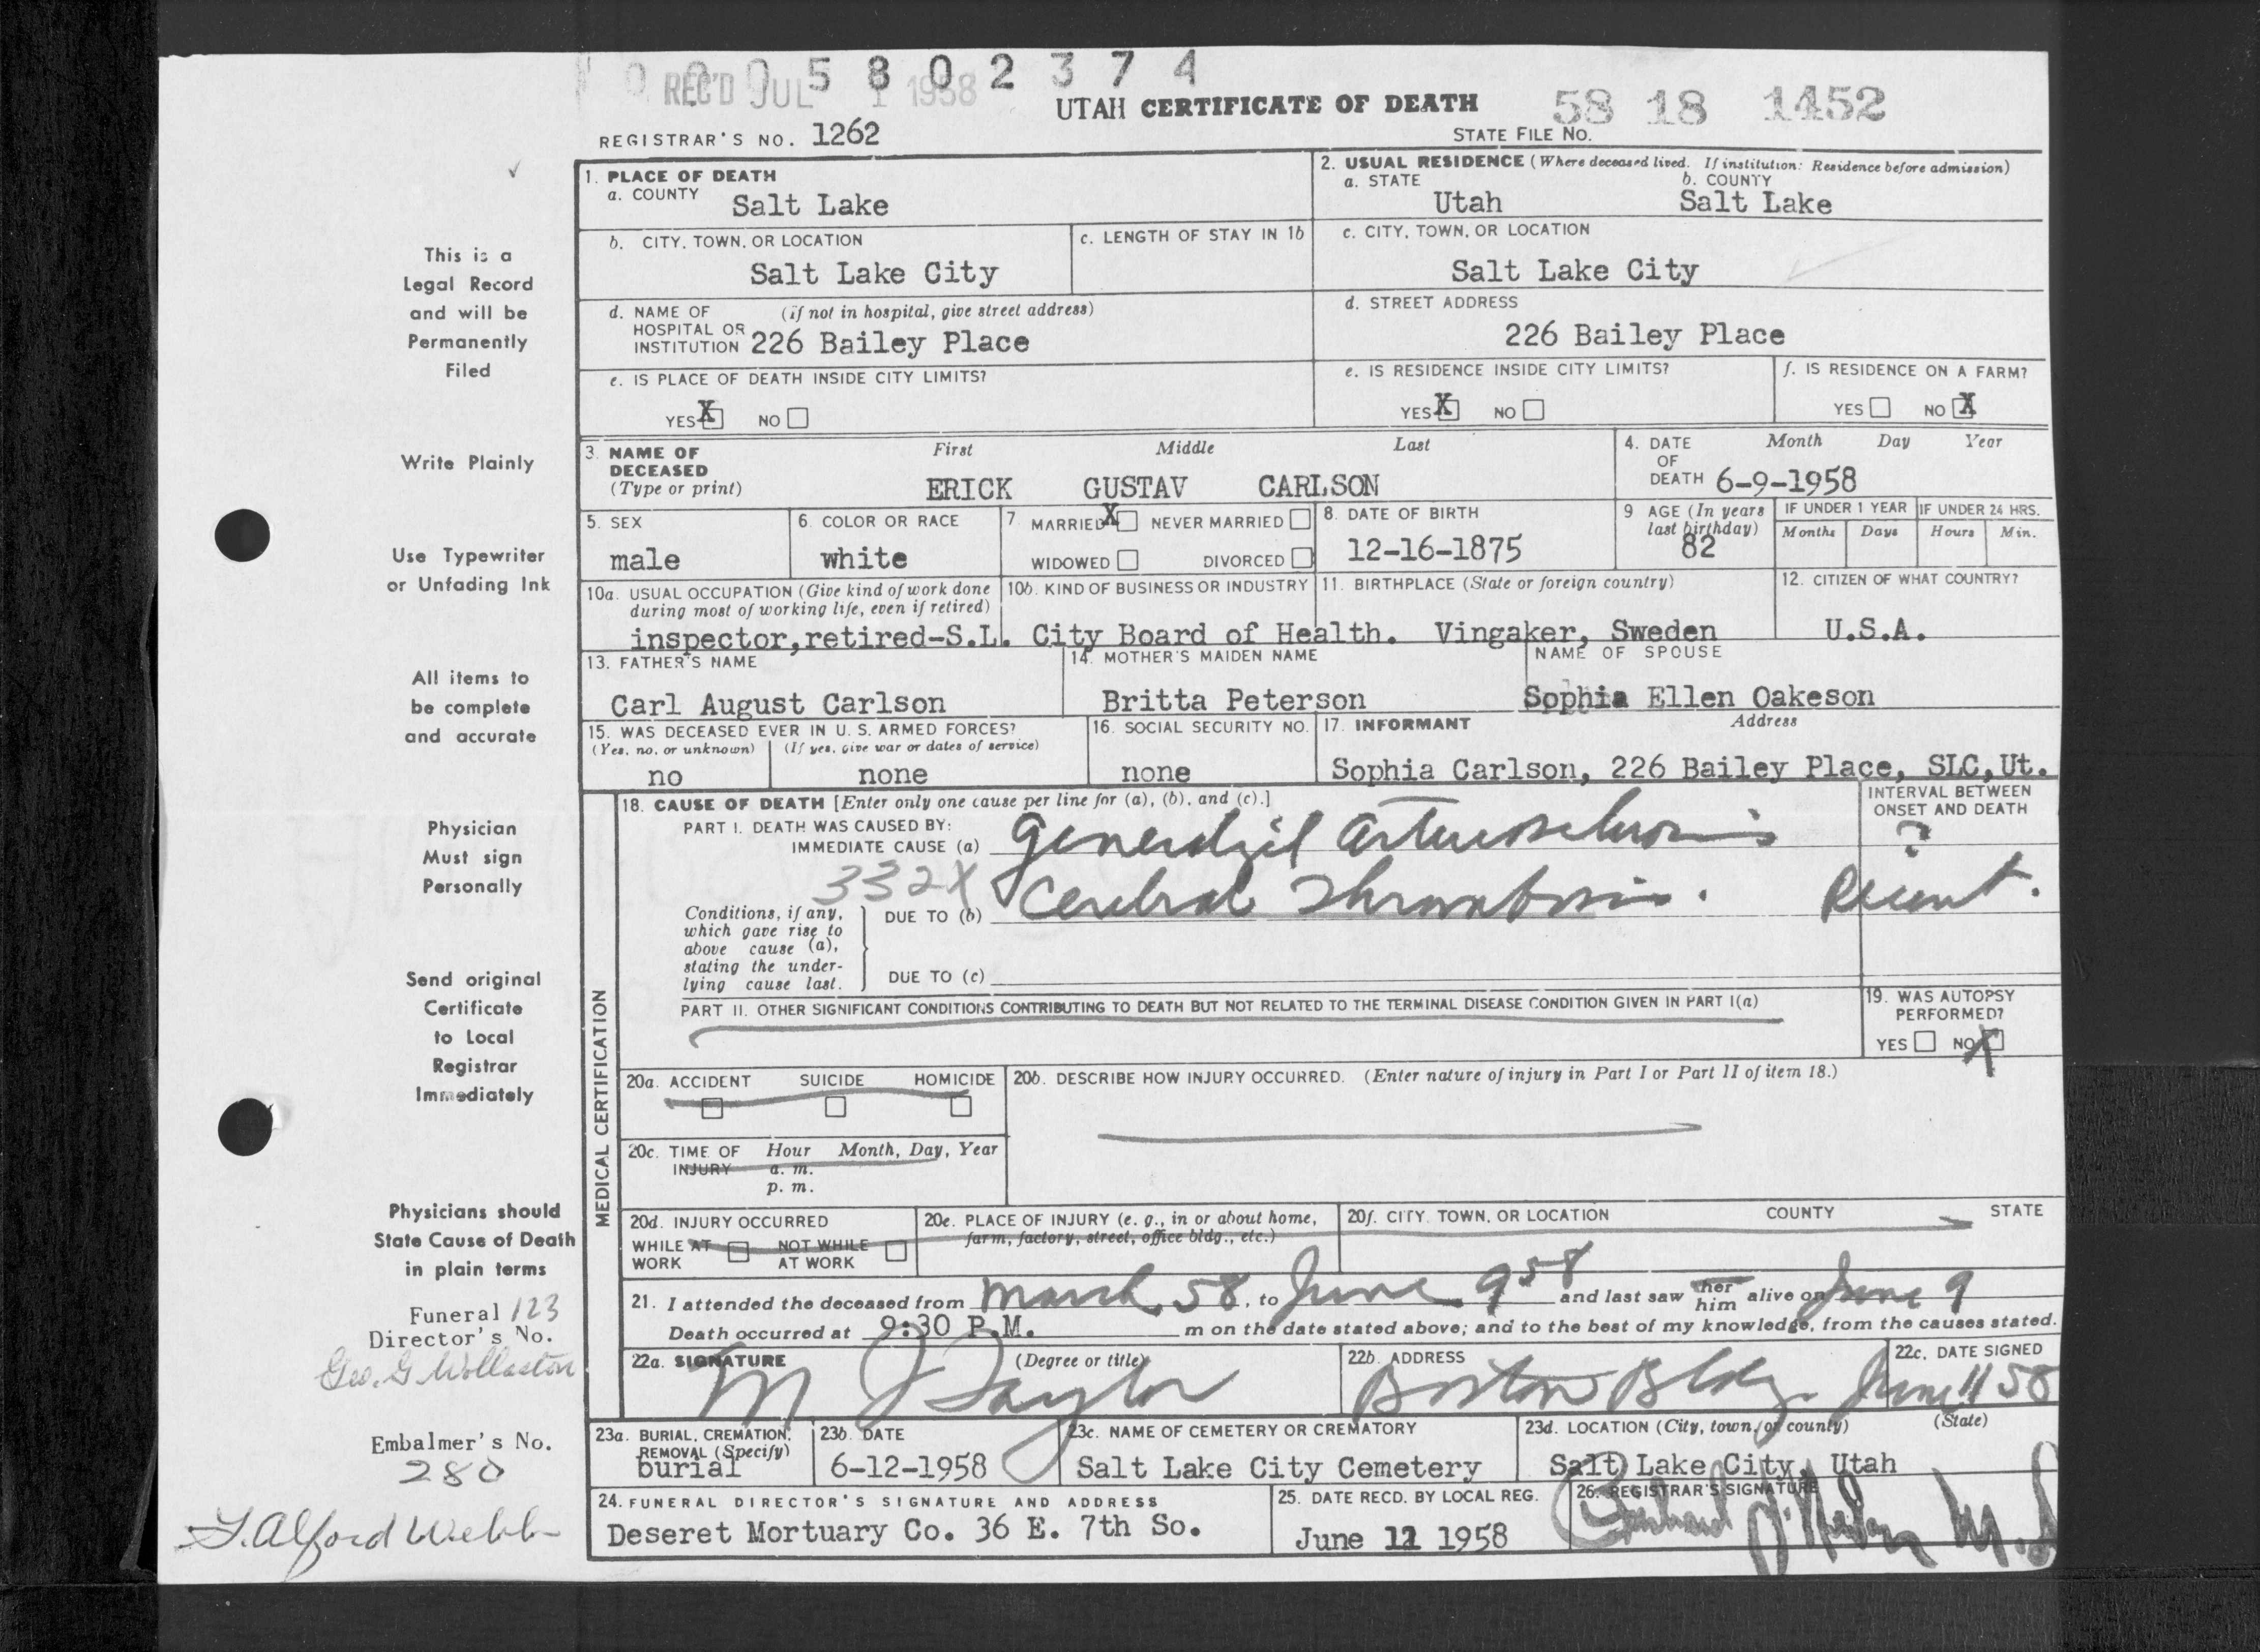 0005802374
REC'D JUL 1 1958
UTAH CERTIFICATE OF DEATH
58 18 1452
REGISTRAR'S NO. 1262
STATE FILE NO.
1. PLACE OF DEATH
a. COUNTY Salt Lake
2. USUAL RESIDENCE (Where deceased lived. If institution: Residence before admission)
a. STATE Utah b. COUNTY Salt Lake
b. CITY, TOWN, OR LOCATION Salt Lake City
c. LENGTH OF STAY IN 1b
c. CITY, TOWN, OR LOCATION Salt Lake City
d. NAME OF HOSPITAL OR INSTITUTION (if not in hospital, give street address) 226 Bailey Place
d. STREET ADDRESS 226 Bailey Place
e. IS PLACE OF DEATH INSIDE CITY LIMITS?
YES X NO
e. IS RESIDENCE INSIDE CITY LIMITS?
YES X NO
f. IS RESIDENCE ON A FARM?
YES NO X
3. NAME OF DECEASED (Type or print)
First Middle Last
ERICK GUSTAV CARLSON
4. DATE OF DEATH Month Day Year
6-9-1958
5. SEX male
6. COLOR OR RACE white
7. MARRIED X NEVER MARRIED
WIDOWED DIVORCED
8. DATE OF BIRTH 12-16-1875
9 AGE (In years last birthday) 82
IF UNDER 1 YEAR Months Days
IF UNDER 24 HRS. Hours Min.
10a. USUAL OCCUPATION (Give kind of work done during most of working life, even if retired)
10b. KIND OF BUSINESS OR INDUSTRY
11. BIRTHPLACE (State or foreign country)
12. CITIZEN OF WHAT COUNTRY?
inspector,retired-S.L. City Board of Health. Vingaker, Sweden U.S.A.
13. FATHER'S NAME Carl August Carlson
14. MOTHER'S MAIDEN NAME Britta Peterson
NAME OF SPOUSE Sophia Ellen Oakeson
15. WAS DECEASED EVER IN U. S. ARMED FORCES?
(Yes, no, or unknown) (If yes, give war or dates of service)
no none
16. SOCIAL SECURITY NO. none
17. INFORMANT Address
Sophia Carlson, 226 Bailey Place, SLC,Ut.
MEDICAL CERTIFICATION
18. CAUSE OF DEATH [Enter only one cause per line for (a), (b), and (c).]
INTERVAL BETWEEN ONSET AND DEATH
PART I. DEATH WAS CAUSED BY:
IMMEDIATE CAUSE (a) Generalized Arteriosclerosis ?
332X
Conditions, if any, which gave rise to above cause (a), stating the underlying cause last.
DUE TO (b) Cerebral Thrombosis. Recent.
DUE TO (c)
PART II. OTHER SIGNIFICANT CONDITIONS CONTRIBUTING TO DEATH BUT NOT RELATED TO THE TERMINAL DISEASE CONDITION GIVEN IN PART I(a)
19. WAS AUTOPSY PERFORMED?
YES NO X
20a. ACCIDENT SUICIDE HOMICIDE
20b. DESCRIBE HOW INJURY OCCURRED. (Enter nature of injury in Part I or Part II of item 18.)
20c. TIME OF INJURY Hour Month, Day, Year
a. m.
p. m.
20d. INJURY OCCURRED
WHILE AT WORK NOT WHILE AT WORK
20e. PLACE OF INJURY (e. g., in or about home, farm, factory, street, office bldg., etc.)
20f. CITY, TOWN, OR LOCATION COUNTY STATE
21. I attended the deceased from March 58, to June 9 58 and last saw her him alive on June 9
Death occurred at 9:30 P.M. m on the date stated above; and to the best of my knowledge, from the causes stated.
22a. SIGNATURE (Degree or title)
M J Taylor
22b. ADDRESS Boston Bldg.
22c. DATE SIGNED June 11 58
23a. BURIAL, CREMATION, REMOVAL (Specify) burial
23b. DATE 6-12-1958
23c. NAME OF CEMETERY OR CREMATORY Salt Lake City Cemetery
23d. LOCATION (City, town, or county) (State)
Salt Lake City, Utah
24. FUNERAL DIRECTOR'S SIGNATURE AND ADDRESS
Deseret Mortuary Co. 36 E. 7th So.
25. DATE RECD. BY LOCAL REG.
June 12 1958
26. REGISTRAR'S SIGNATURE
This is a
Legal Record
and will be
Permanently
Filed
Write Plainly
Use Typewriter
or Unfading Ink
All items to
be complete
and accurate
Physician
Must sign
Personally
Send original
Certificate
to Local
Registrar
Immediately
Physicians should
State Cause of Death
in plain terms
Funeral 123
Director's No.
Geo. G Wollaston
Embalmer's No.
280
Alford Webb